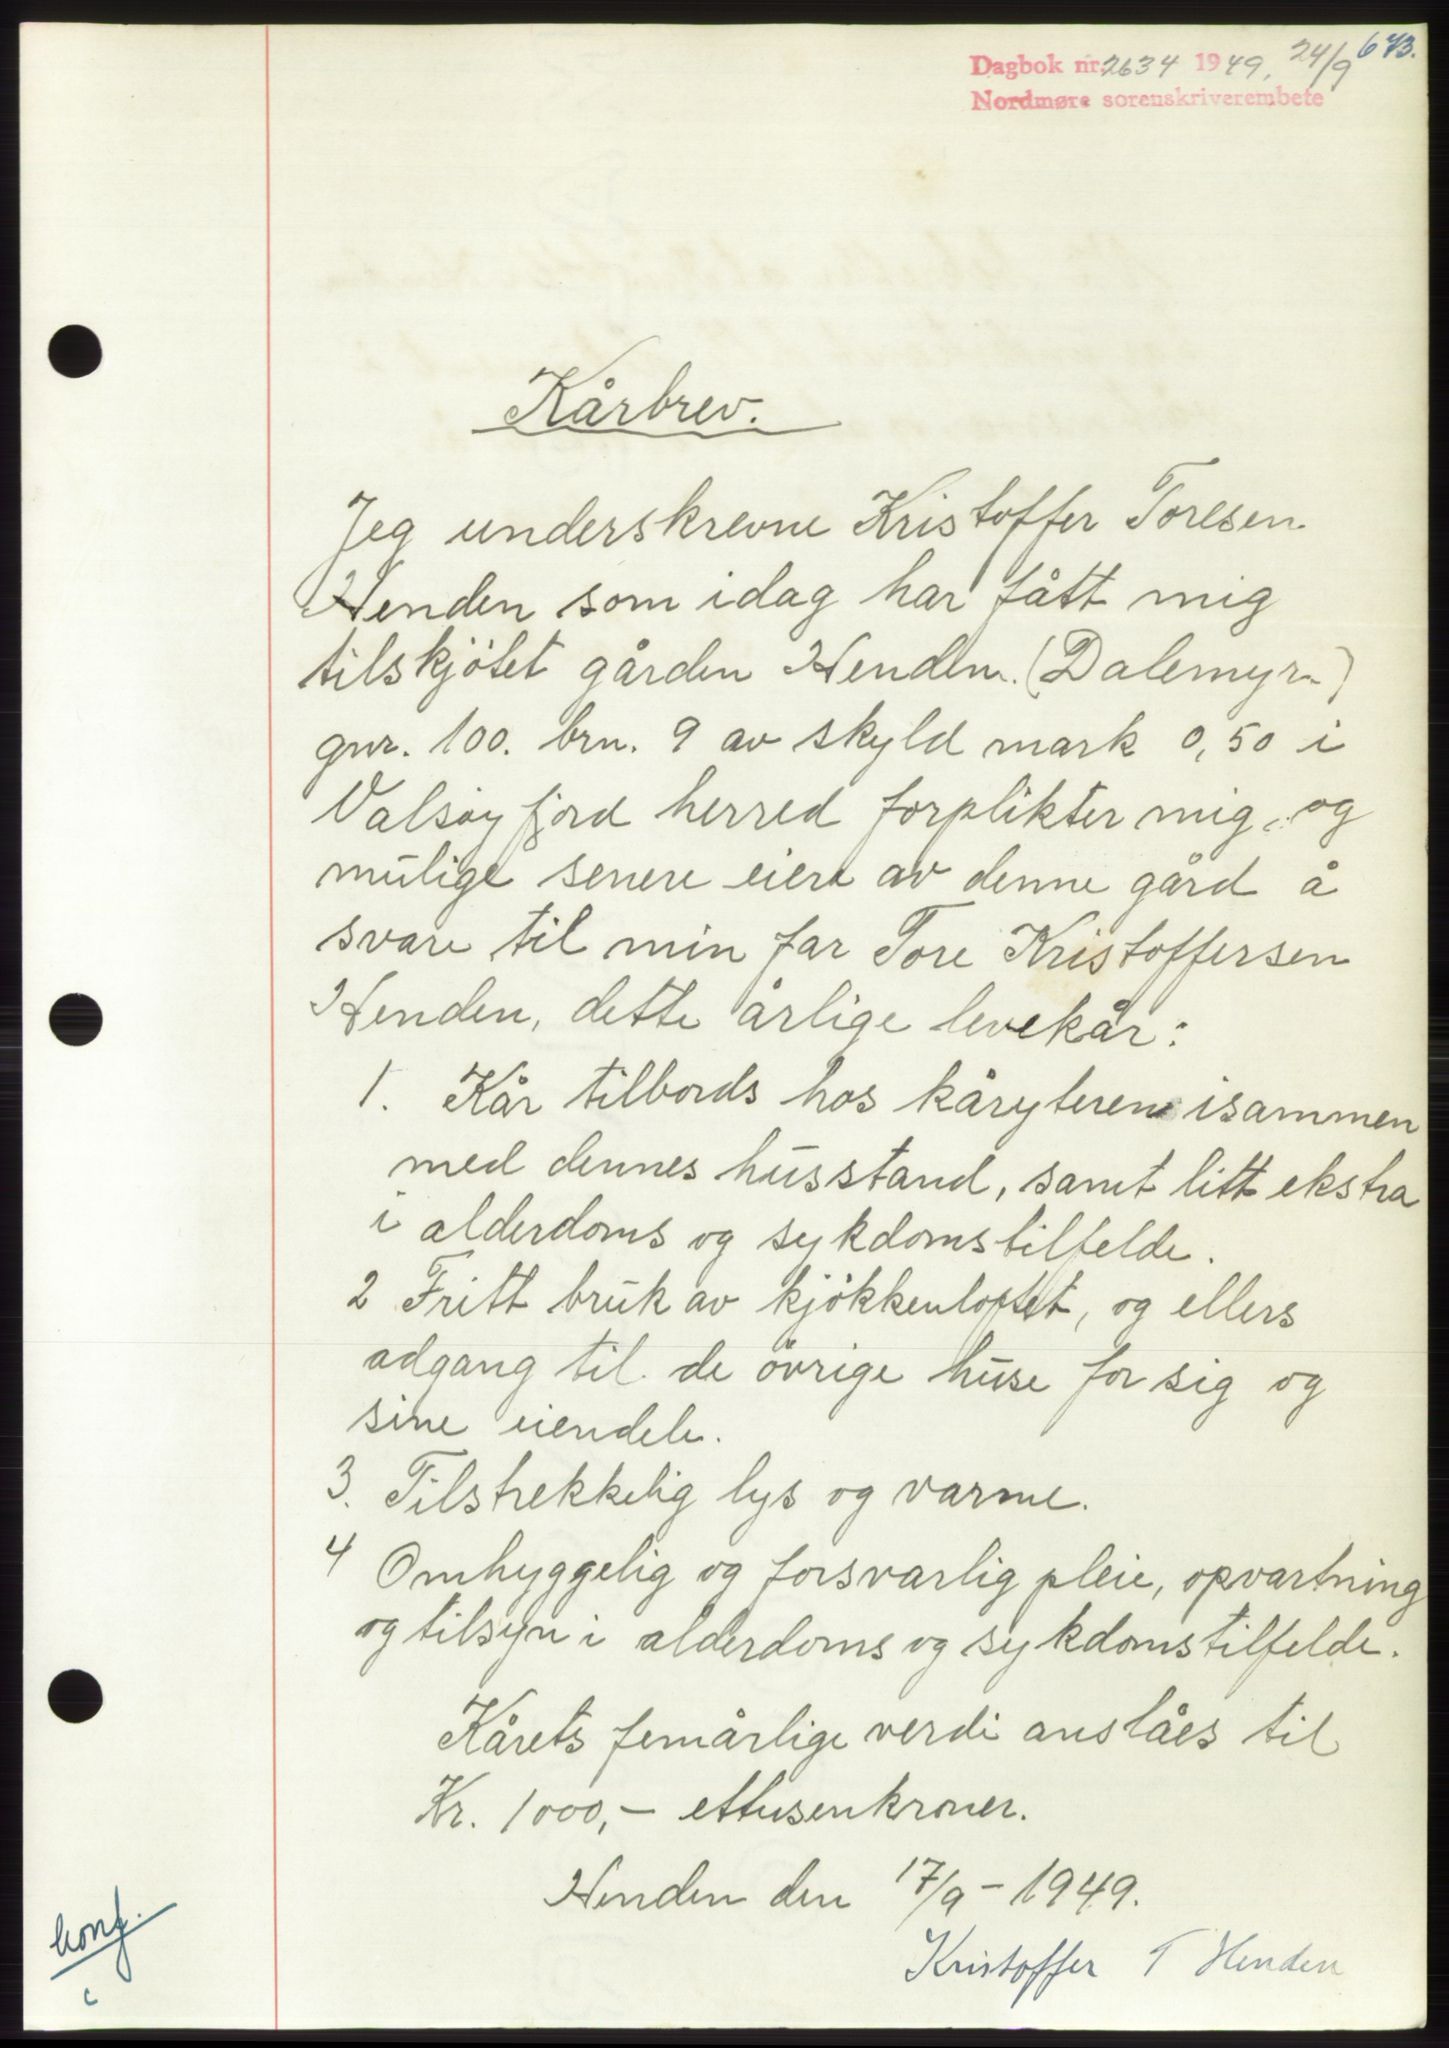 673.
Dagbok nr. 2634 1949, 24/9
Nordmøre sorenskriverembete
Kårbrev.
Jeg underskrevne Kristoffer Toresen
Henden som idag har fått mig
tilskjötet gården Henden. (Dalemyr.)
gnr. 100. brn. 9 av skyld mark 0,50 i
Valsøyfjord herred forplikter mig, og
mulige senere eiere av denne gård å
svare til min far Tore Kristoffersen
Henden, dette årlige levekår:
1. Kår tilbords hos kåryteren isammen
med dennes husstand, samt litt ekstra
i alderdoms og sykdomstilfelde.
2 Fritt bruk av kjökkenloftet, og ellers
adgang til de övrige huse for sig og
sine eiendele.
3. Tilstrekkelig lys og varme.
4 Omhyggelig og forsvarlig pleie, opvartning
og tilsyn i alderdoms og sykdomstilfelde.
Kårets femårlige verdi anslåes til
Kr. 1000,- ettusenkroner.
Henden den 17/9 - 1949.
Kristoffer T Henden
konf.